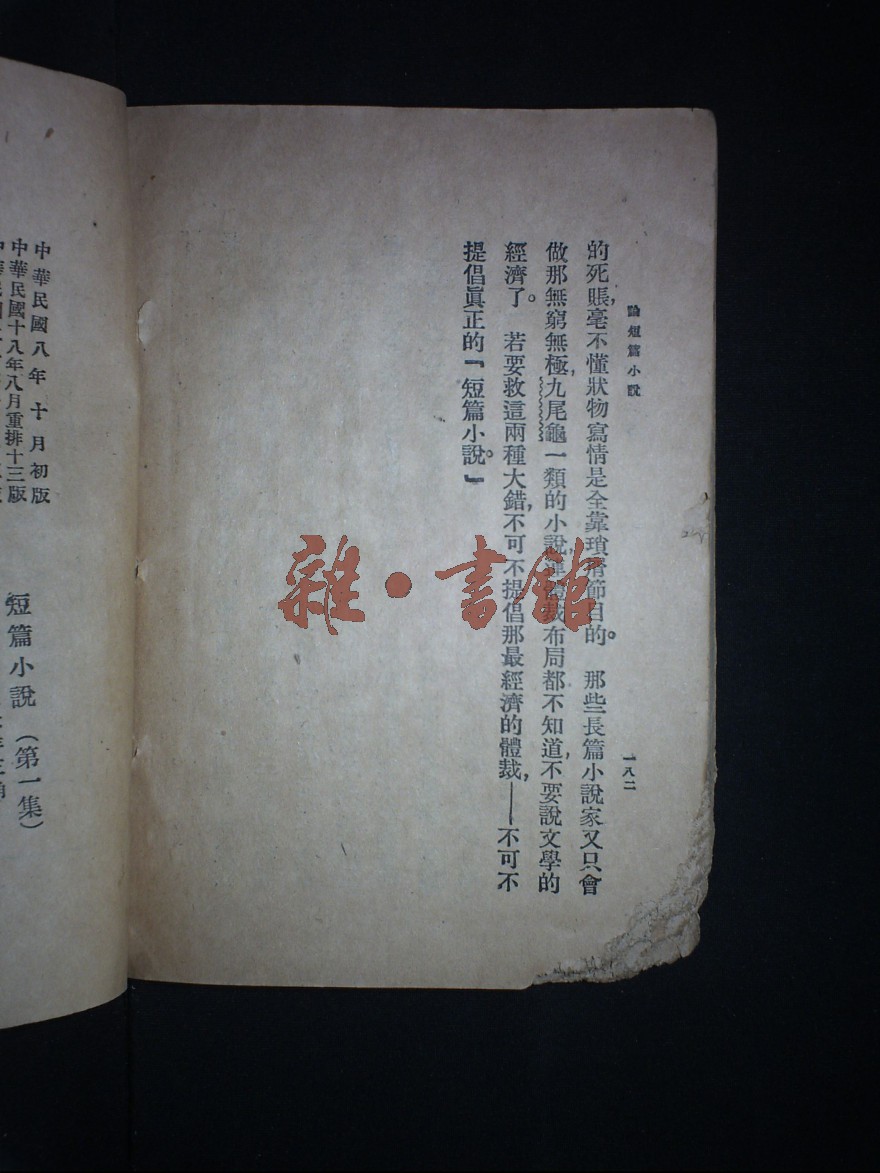 論短篇小說
一八二
的死賬,毫不懂狀物寫情是全靠瑣屑節目的。 那些長篇小說家又只會
做那無窮無極,九尾龜一類的小說,連體裁布局都不知道,不要說文學的
經濟了。 若要救這兩種大錯,不可不提倡那最經濟的體裁,——不可不
提倡眞正的『短篇小說。』
雜·書館
中華民國八年十月初版
中華民國十八年八月重排十三版
短篇小說(第一集)